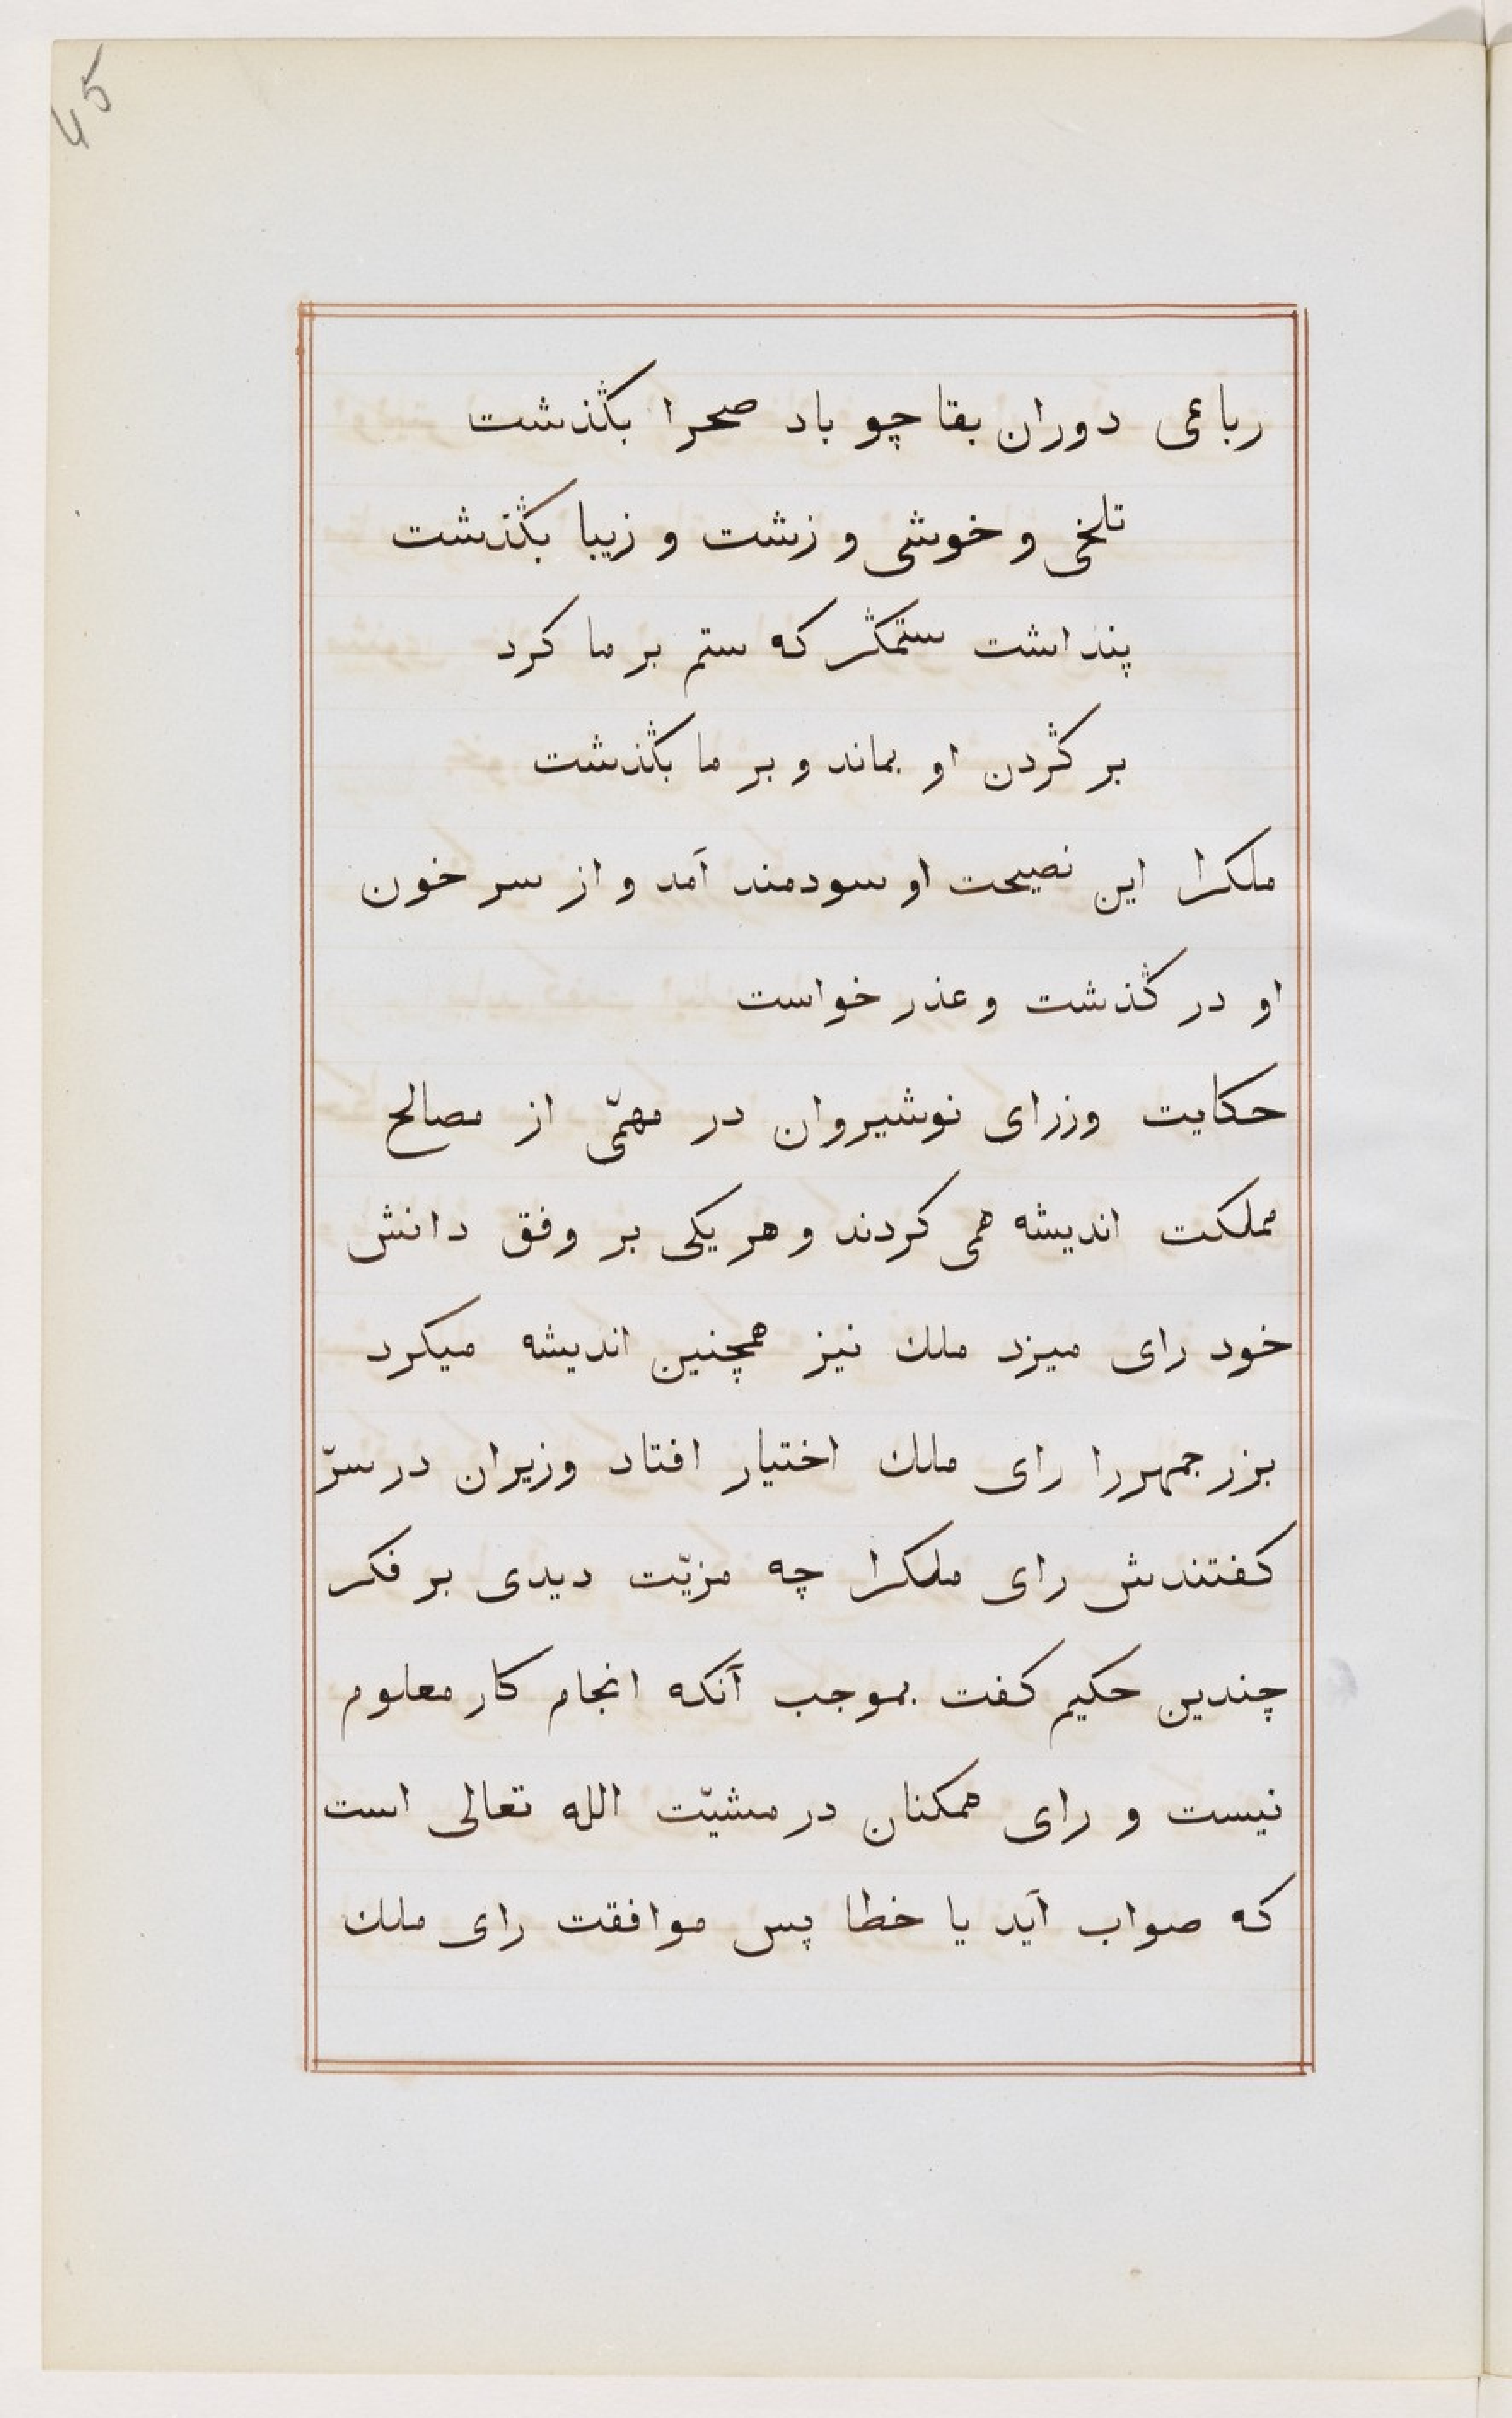 45
رباعی دوران بقا چو باد صحرا بگذشت
تلخی و خوشی و زشت و زیبا بگذشت
پنداشت ستمگر که ستم بر ما کرد
بر گردن او بماند و بر ما بگذشت
ملکرا این نصیحت او سودمند آمد و از سر خون
او در گذشت و عذر خواست
حکایت وزرای نوشیروان در مهمّی از مصالح
مملکت اندیشه همی کردند و هر یکی بر وفق دانش
خود رای میزد ملك نیز همچنین اندیشه میکرد
بزرجمهررا رای ملك اختیار افتاد وزیران در سرّ
کفتندش رای ملکرا چه مزیّت دیدی بر فکر
چندین حکیم کفت بموجب آنکه انجام کار معلوم
نیست و رای همکنان در مشیّت الله تعالی است
که صواب آید یا خطا پس موافقت رای ملك